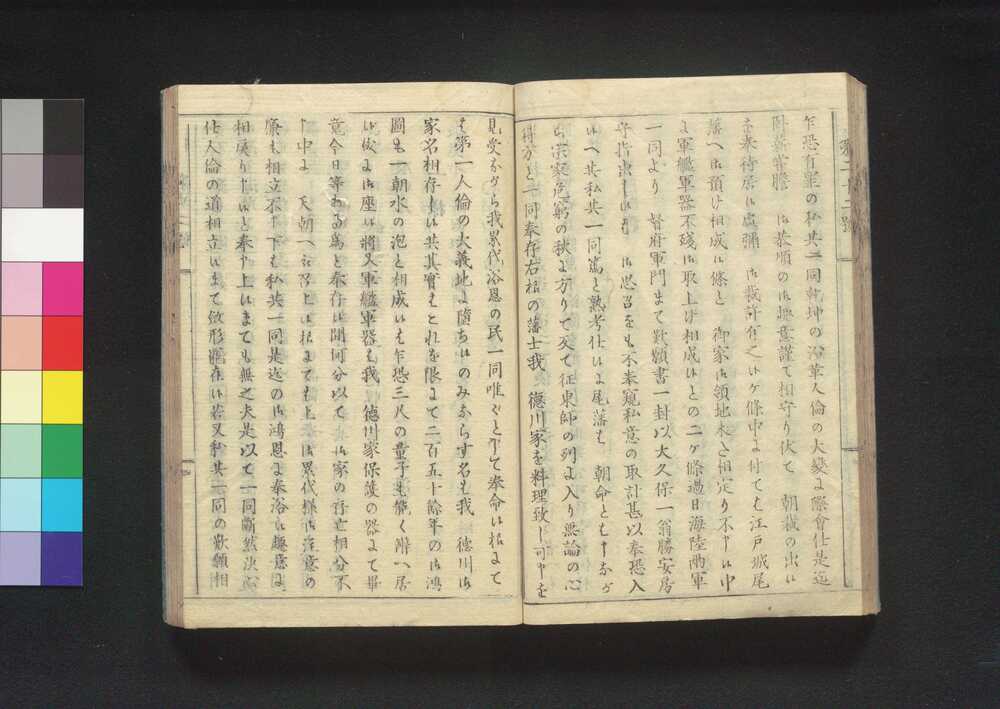 第二十二號
乍恐有罪の私共一同乾坤の沿革人倫の大變よ際會仕是迄
薪嘗膽 恭順の御趣意謹て相守り伏て 朝裁の出
を奉待居候處彌 御裁許有之候ヶ條中よ付ても江戸城尾
藩へ御預け相成候條と 御家御領地未た相定り不申候中
よ軍艦軍器不殘御取上け相成候との二ヶ條過日海陸兩軍
一同より 督府軍門まて歎願書一封以大久保一翁勝安房
守指出し候 御思召をも不奉窺私意の取計甚以奉恐入
候へ共私共一同篤と熟考仕候よ尾藩も 朝命とも申なが
ら宗家危窮の秋よ方りて反て征東師の列よ入り無論の心
得方と一同奉存右樣の藩士我 德川家を料理致し可申を
見受ながら我累代浴恩の民一同唯々と申て奉命候樣よて
は第一人倫の大義地よ墮ち候のみならす名も我 德川御
家名相存し候共其實もとれを限よて二百五十餘年の御鴻
圖も一朝水の泡と相成候も乍恐三尺の童子も能く辨へ居
候儀よ御座候將又軍艦軍器も我 德川家保護の器よて畢
竟今日事わる爲と奉存候間何分以て 御家の存亡相分不
申中よ 天朝へ 召上候樣よても上 累代樣御注意の
廉も相立不申下も私共一同是迄の御鴻恩よ奉浴候趣意よ
相戾り申候と奉申上候まても無之夫是以て一同斷然決心
仕人倫の道相立候まて 罷在候若又私共一同の歎願相